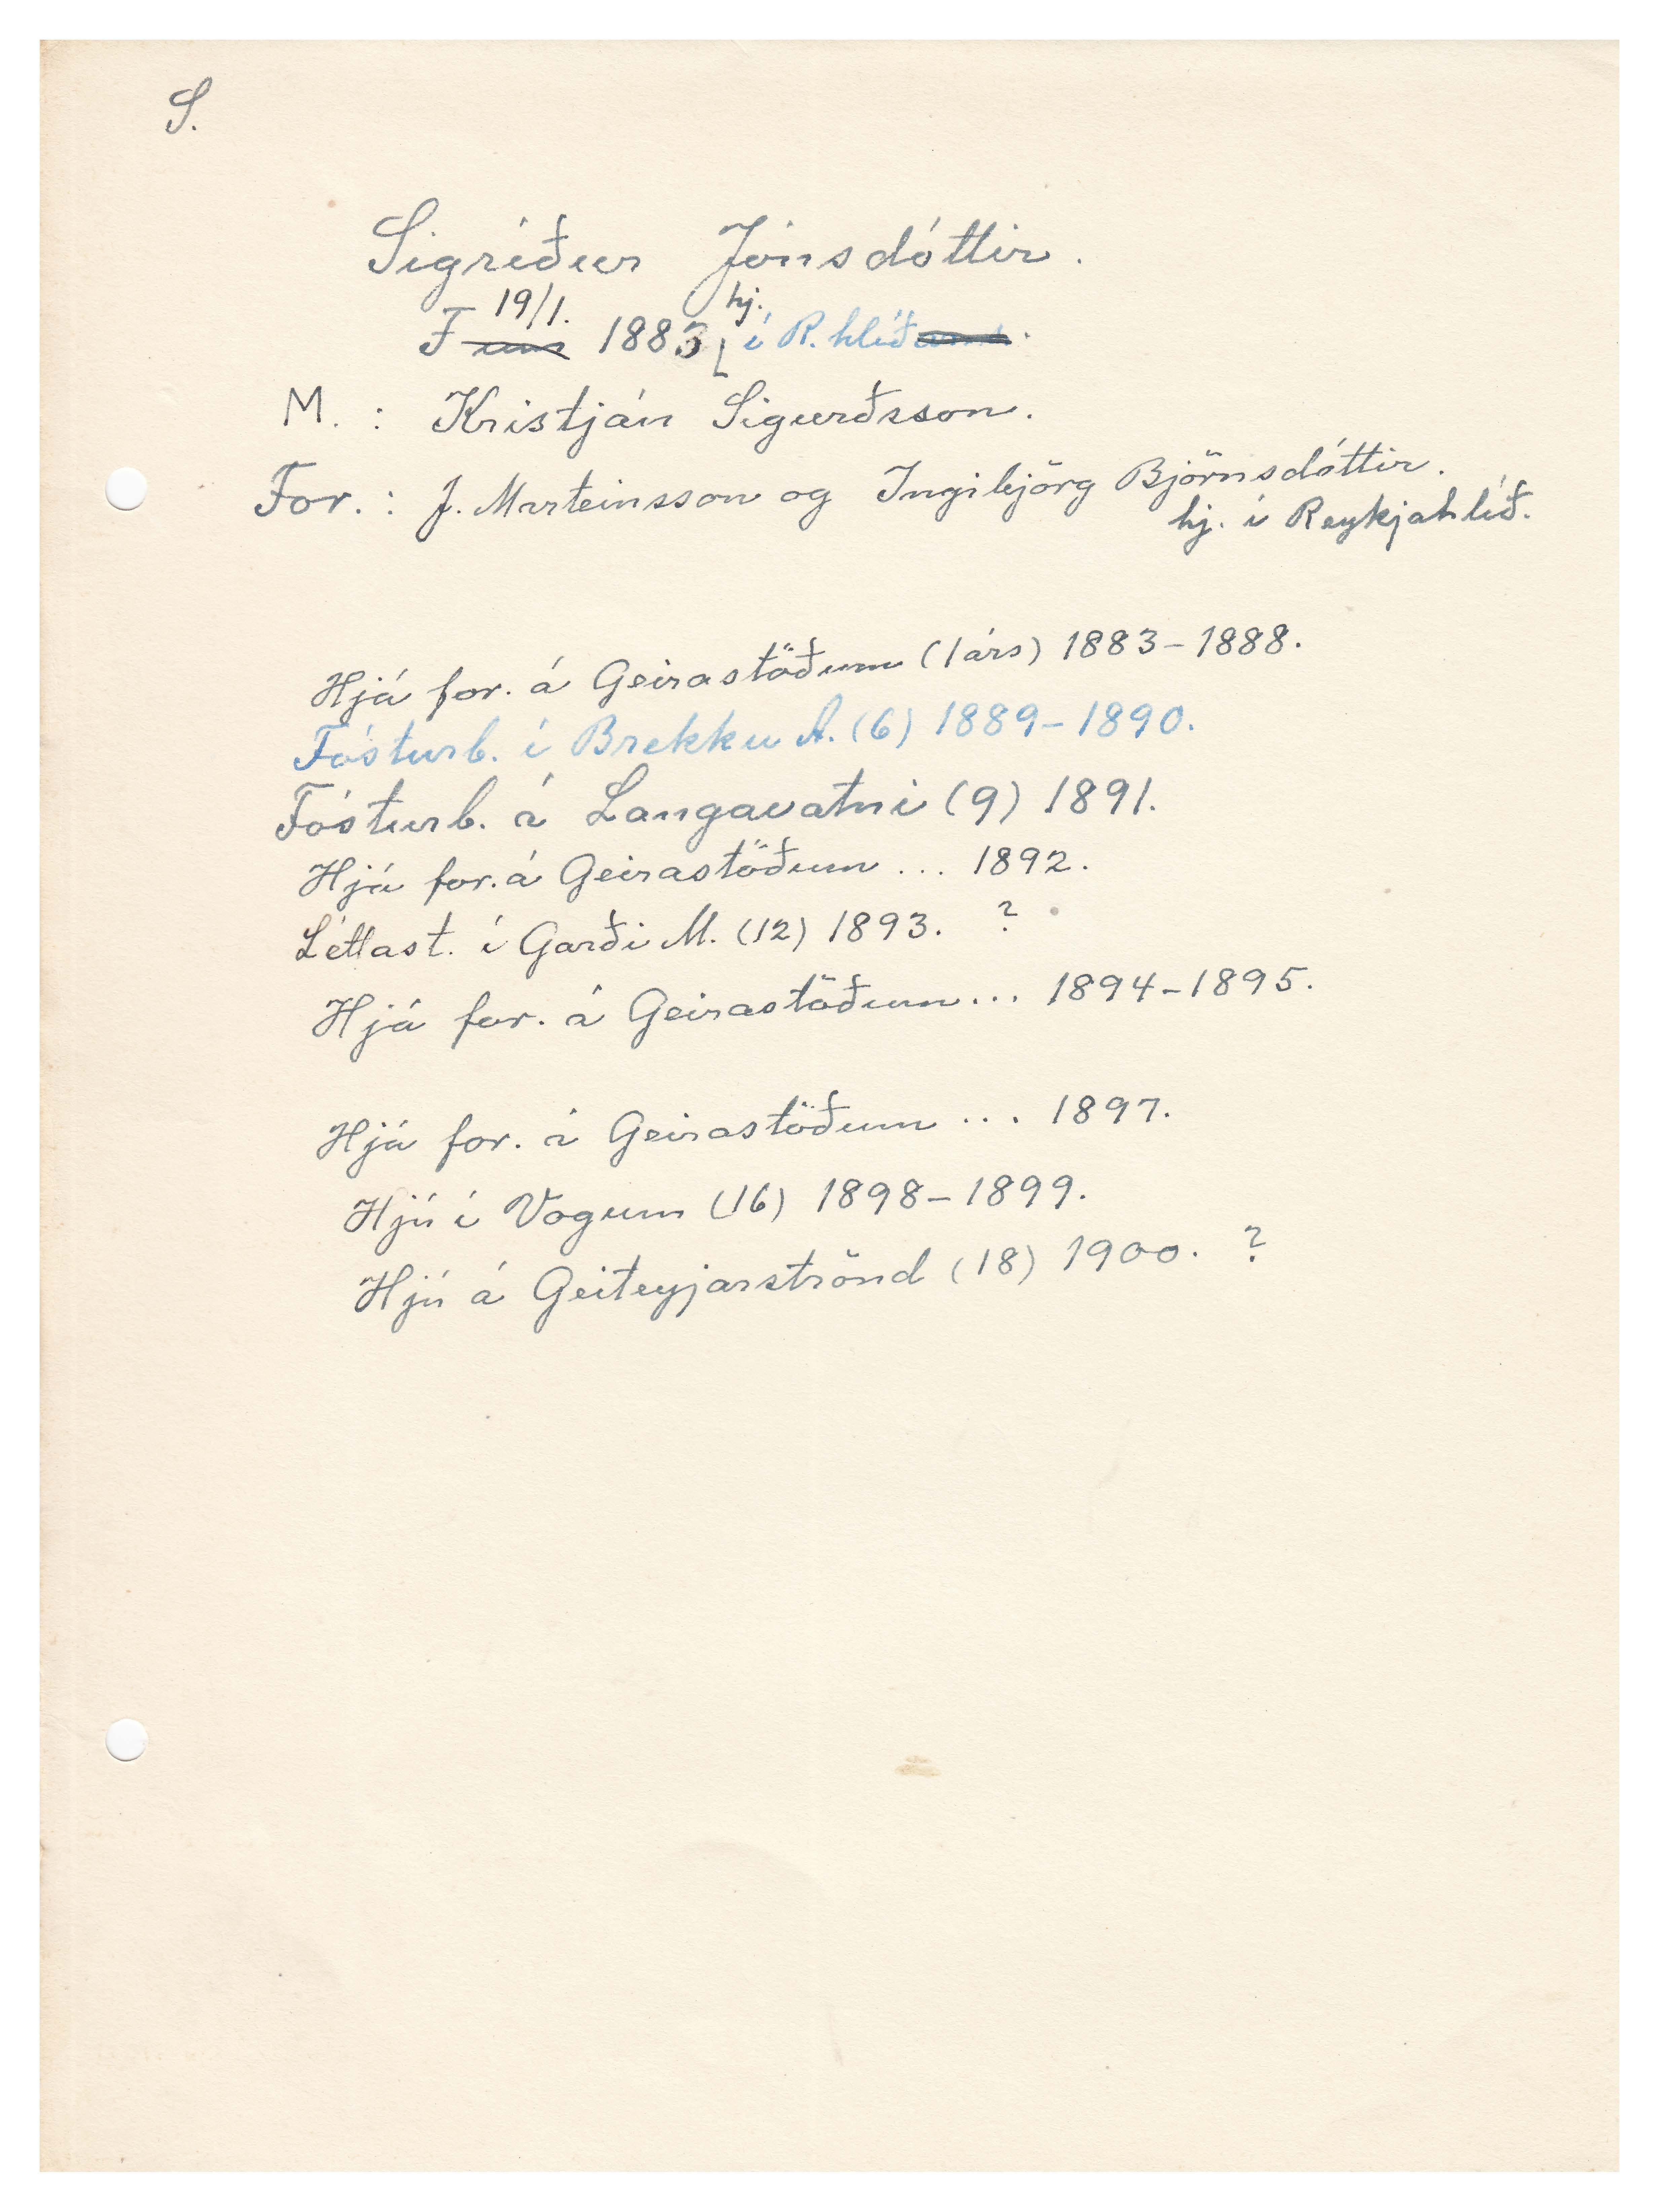 S.
Sigríður Jónsdóttir.
F 19/1. 1883 hj. í R.hlíð.
M. : Kristján Sigurðsson.
For. : J. Marteinsson og Ingibjörg Björnsdóttir.
hj. í Reykjahlíð.
Hjá for. á Geirastöðum (1 árs) 1883-1888.
Fósturb. í Brekku A. (6) 1889-1890.
Fósturb. á Langavatni (9) 1891.
Hjá for. á Geirastöðum ... 1892.
Léttast. í Garði M. (12) 1893. ?
Hjá for. á Geirastöðum ... 1894-1895.
Hjá for. á Geirastöðum ... 1897.
Hjú í Vogum (16) 1898-1899.
Hjú á Geiteyjarströnd (18) 1900. ?